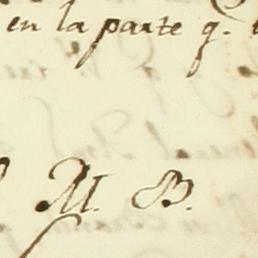 en la parte q.
M. B.